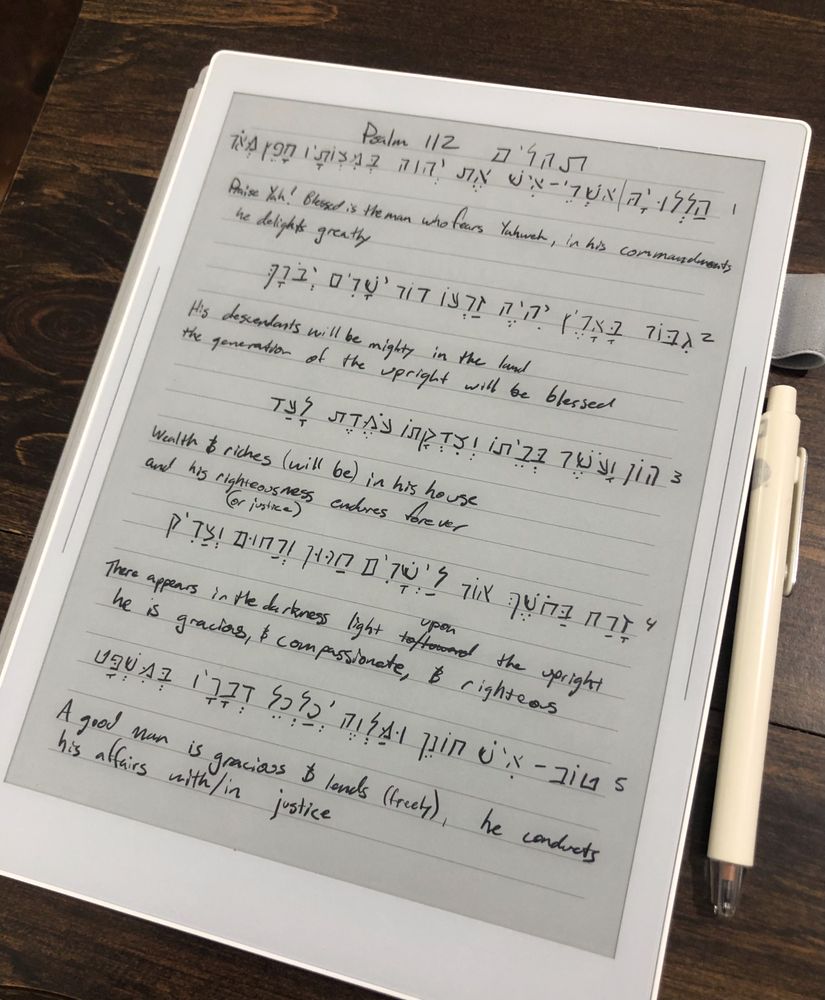 Psalm 112 תהלים
1 הַלְלוּ יָהּ | אַשְׁרֵי-אִישׁ יָרֵא אֶת יְהוָה בְּמִצְוֺתָיו חָפֵץ מְאֹד
Praise Yah! Blessed is the man who fears Yahweh, in his commandments
he delights greatly
2 גִּבּוֹר בָּאָרֶץ יִהְיֶה זַרְעוֹ דּוֹר יְשָׁרִים יְבֹרָךְ
His descendants will be mighty in the land
the generation of the upright will be blessed
3 הוֹן וָעֹשֶׁר בְּבֵיתוֹ וְצִדְקָתוֹ עֹמֶדֶת לָעַד
Wealth & riches (will be) in his house
and his righteousness endures forever
(or justice)
4 זָרַח בַּחֹשֶׁךְ אוֹר לַיְשָׁרִים חַנּוּן וְרַחוּם וְצַדִּיק
upon
There appears in the darkness light to/toward the upright
he is gracious, & compassionate, & righteous
5 טוֹב-אִישׁ חוֹנֵן וּמַלְוֶה יְכַלְכֵּל דְּבָרָיו בְּמִשְׁפָּט
A good man is gracious & lends (freely), he conducts
his affairs with/in justice